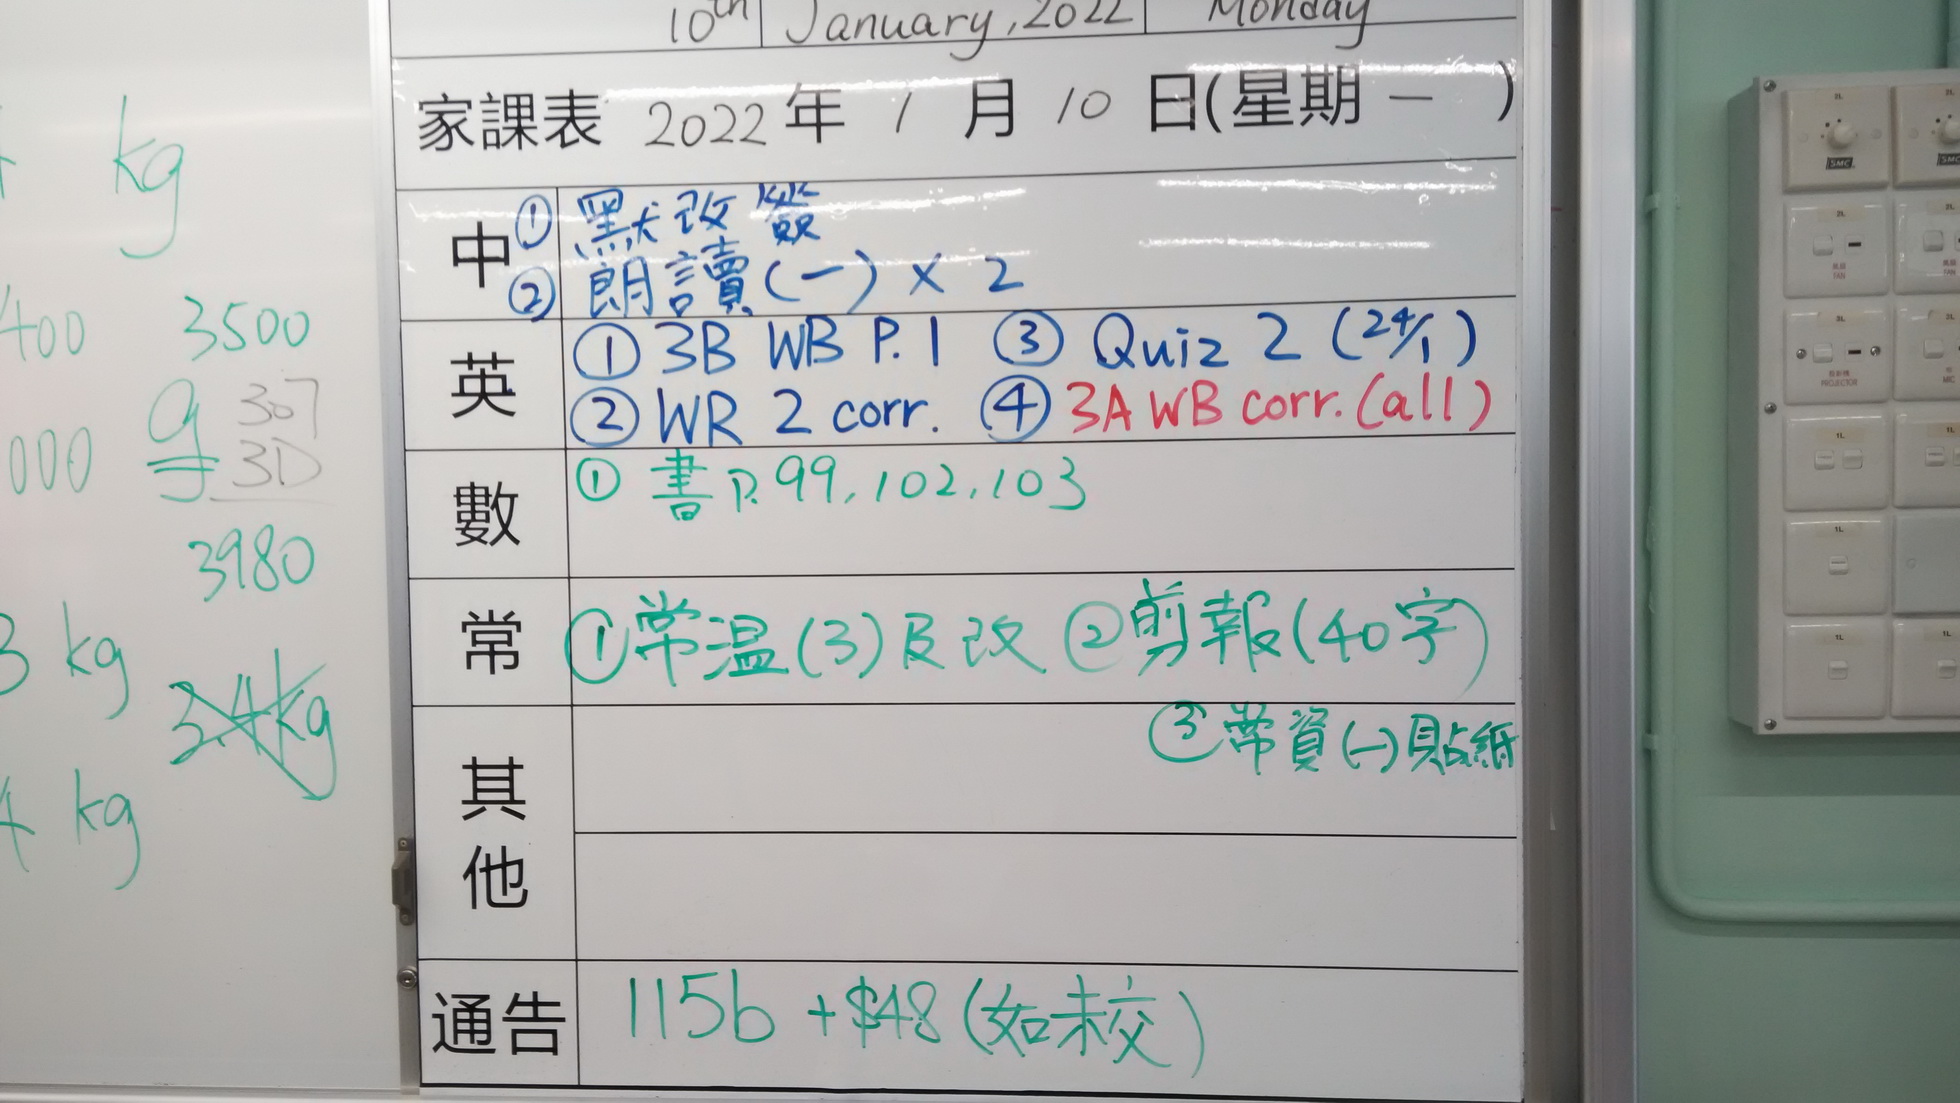 10th January, 2022 Monday
家課表 2022 年 1 月 10 日(星期 一 )
中 ① 默改簽
② 朗讀(一) x 2
英 ① 3B WB P.1 ③ Quiz 2 (24/1)
② WR 2 corr. ④ 3A WB corr.(all)
數 ① 書 P.99,102,103
常 ①常溫(3)及改 ②剪報(40字)
③常資(一)貼紙
其他
通告 115b +$48(如未交)
kg
400 3500
g 307
000 3D
3980
3 kg
3.4kg
4 kg
SMC
SMC
FAN
FAN
PROJECTOR
MIC
1L
1L
1L
1L
1L
1L